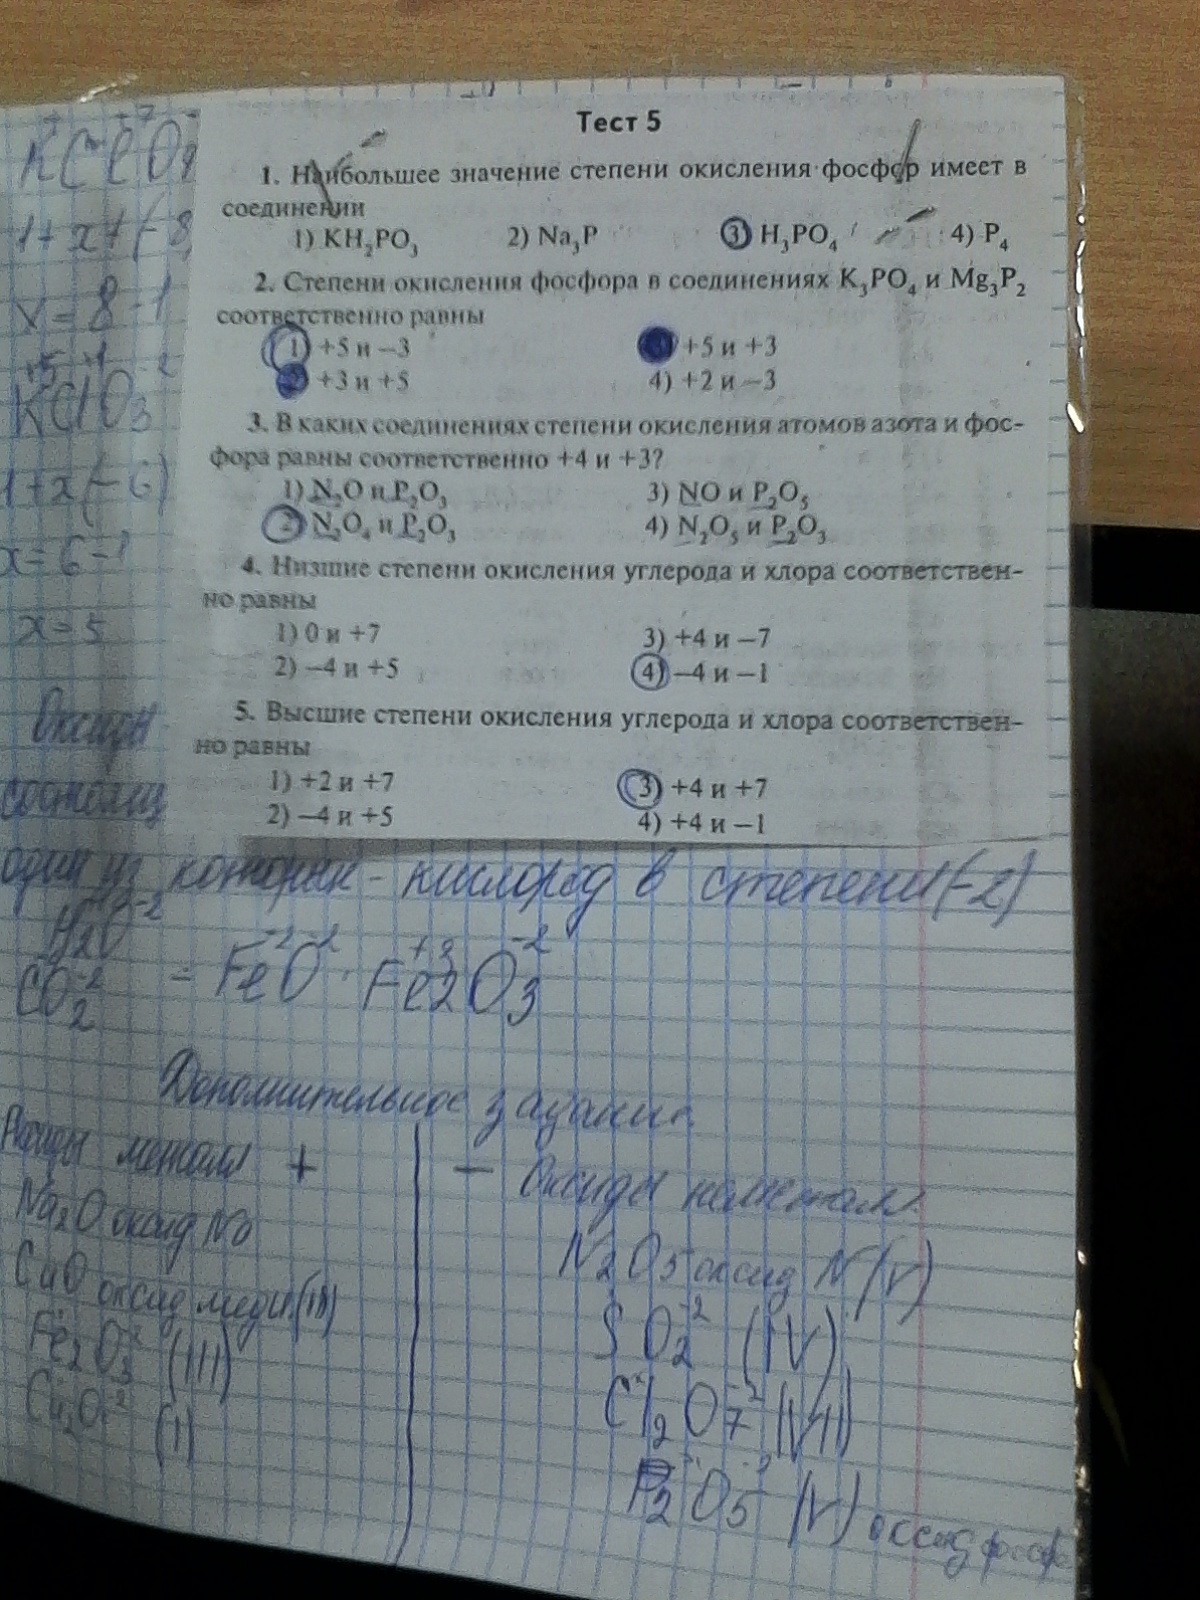 KClO4
Тест 5
1. Наибольшее значение степени окисления фосфор имеет в
соединении
1) KH2PO3 2) Na3P 3) H3PO4 4) P4
1+x+(-8
x=8-1
2. Степени окисления фосфора в соединениях K3PO4 и Mg3P2
соответственно равны
1) +5 и –3 +5 и +3
+3 и +5 4) +2 и –3
KClO3
3. В каких соединениях степени окисления атомов азота и фос-
фора равны соответственно +4 и +3?
1) N2O и P2O3 3) NO и P2O5
2) N2O4 и P2O3 4) N2O5 и P2O3
1+x(-6)
x=6-1
x=5
4. Низшие степени окисления углерода и хлора соответствен-
но равны
1) 0 и +7 3) +4 и –7
2) –4 и +5 4) –4 и –1
Оксиды
5. Высшие степени окисления углерода и хлора соответствен-
но равны
1) +2 и +7 3) +4 и +7
2) –4 и +5 4) +4 и –1
один из которых - кислород в степени (-2)
H2O-2
CO2-2 - FeO-2 Fe2+3O3-2
Дополнительное задание
металл + | – Оксиды неметалл.
Na2O оксид Na
CuO оксид меди (II)
Fe2O3-2 (III)
Cu2O-2 (I)
N2O5 оксид N (V)
SO2-2 (IV)
Cl2O7-2 (VII)
P2O5-2 (V) оксид фосф